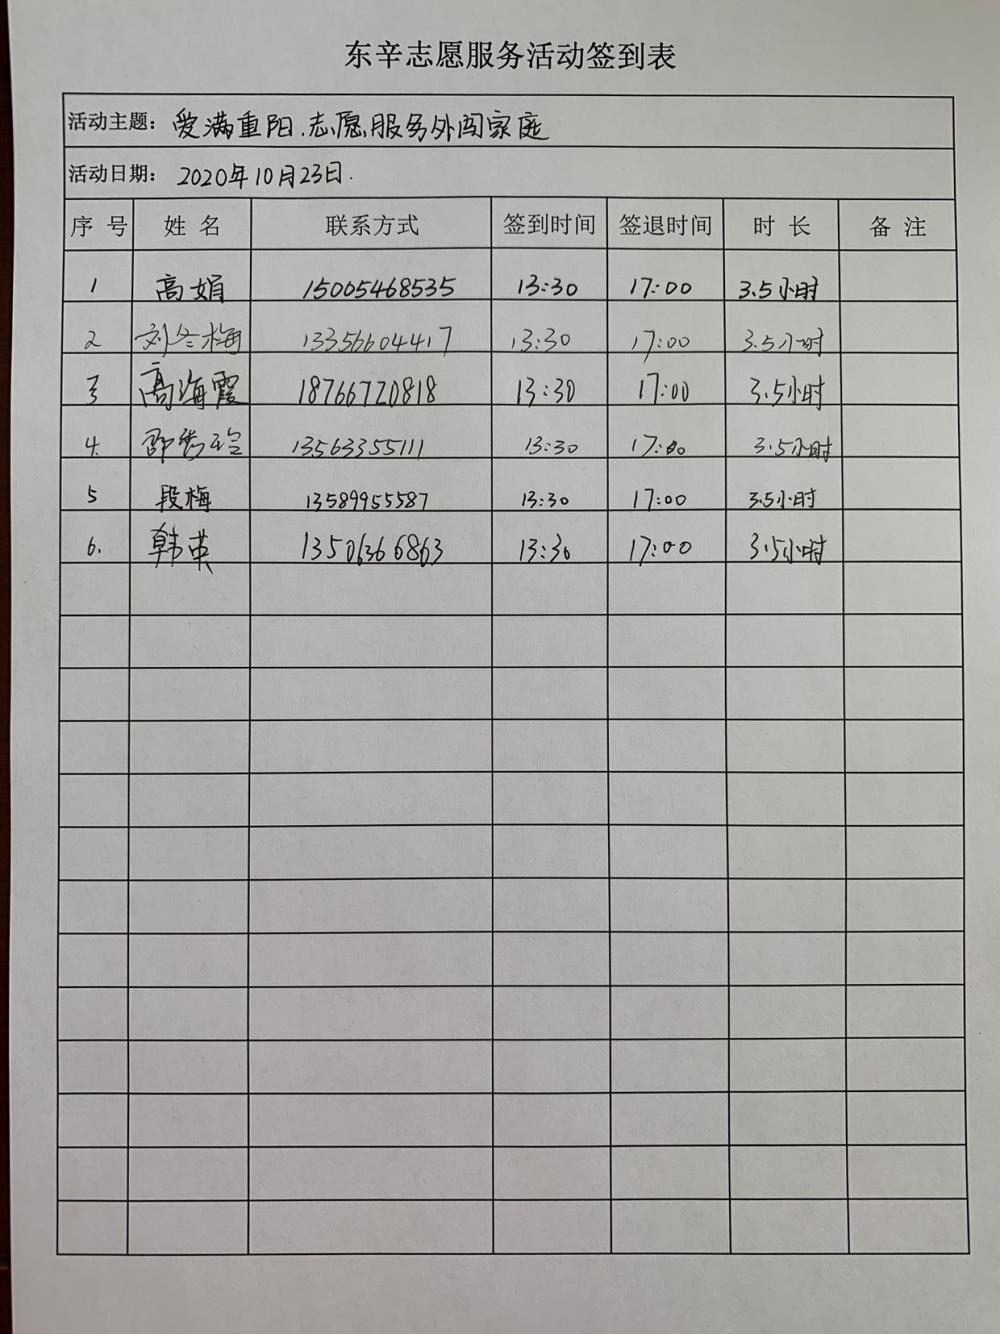 东辛志愿服务活动签到表
活动主题: 爱满重阳.志愿服务外闯家庭
活动日期: 2020年10月23日.
序号 姓名 联系方式 签到时间 签退时间 时长 备注
1 高娟 15005468535 13:30 17:00 3.5小时
2 刘冬梅 13356604417 13:30 17:00 3.5小时
3 高海霞 18766720818 13:30 17:00 3.5小时
4. 邵秀玲 13563355111 13:30 17:00 3.5小时
5 段梅 13589955587 13:30 17:00 3.5小时
6. 韩英 13506366863 13:30 17:00 3.5小时